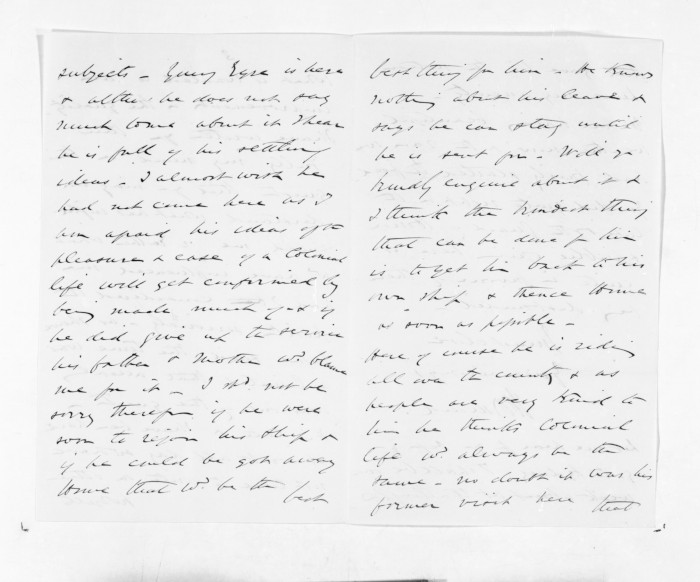 subjects – Gervy Eyre is here
& altho' he does not say
much to me about it I hear
he is full of his settling
ideas – I almost wish he
had not come here as I
am afraid his ideas of the
pleasure & ease of a Colonial
life will get confirmed by
being made much of & if
he did give up the service
his father & mother wd. blame
me for it – I shd. not be
sorry therefore if he were
soon to rejoin his ship &
if he could be got away
Home that wd. be the
best
best thing for him – He knows
nothing about his leave &
says he can stay until
he is sent for – Will you
kindly enquire about it &
I think the kindest thing
that can be done for him
is to get him back to his
own ship & thence Home
as soon as possible –
Here of course he is riding
all over the country & as
people are very kind to
him he thinks Colonial
life wd. always be the
same – no doubt it was his
former visit here that